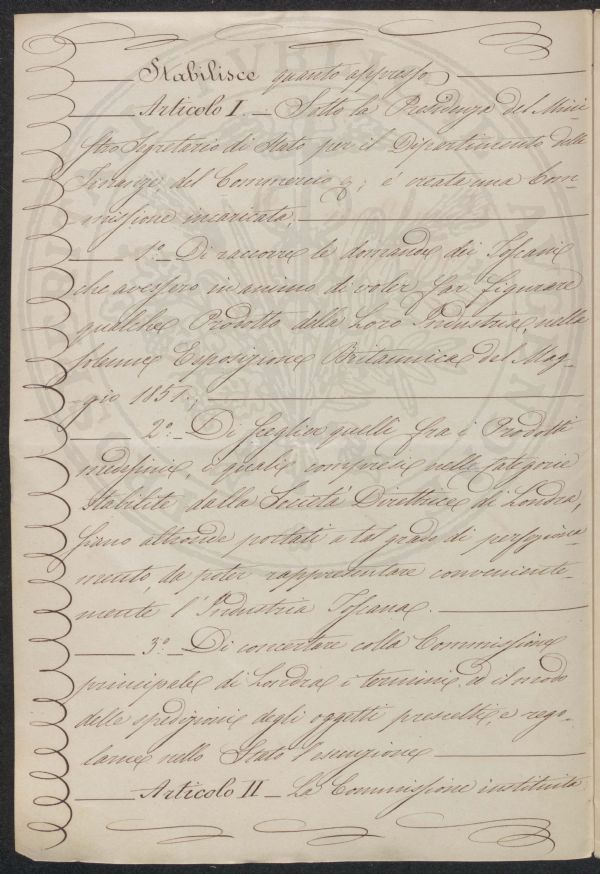 Stabilisce quanto appresso
Articolo I. — Sotto la Presidenza del Mini
stro Segretario di Stato per il Dipartimento delle
Finanze, del Commercio &; è creata una Com-
missione incaricata,
1º — Di raccorre le domande dei Toscani
che avessero in animo di voler far figurare
qualche Prodotto della Loro Industria, nella
solenne Esposizione Britannica del Mag-
gio 1851.;
2º — Di sceglier quelli fra i Prodotti
medesimi, i quali compresi nelle categorie
stabilite dalla Società Direttrice di Londra,
siano altronde portati a tal grado di perfeziona
mento, da poter rappresentare conveniente-
mente l'Industria Toscana.
3º — Di concertare colla Commissione
principale di Londra i termini ed il modo
delle spedizioni degli oggetti prescelti, e rego-
larne nello Stato l'esenzione
Articolo II — La Commissione instituita